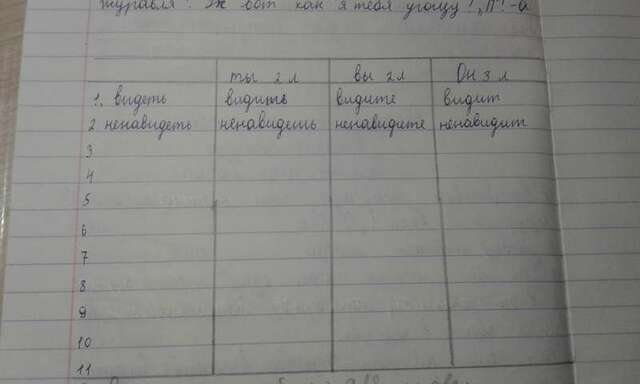 журавля. Ж вот как я тебя угощу!
ты 2 л вы 2 л Он 3 л
1. видеть видишь видите видит
2 ненавидеть ненавидешь ненавидите ненавидит
3
4
5
6
7
8
9
10
11